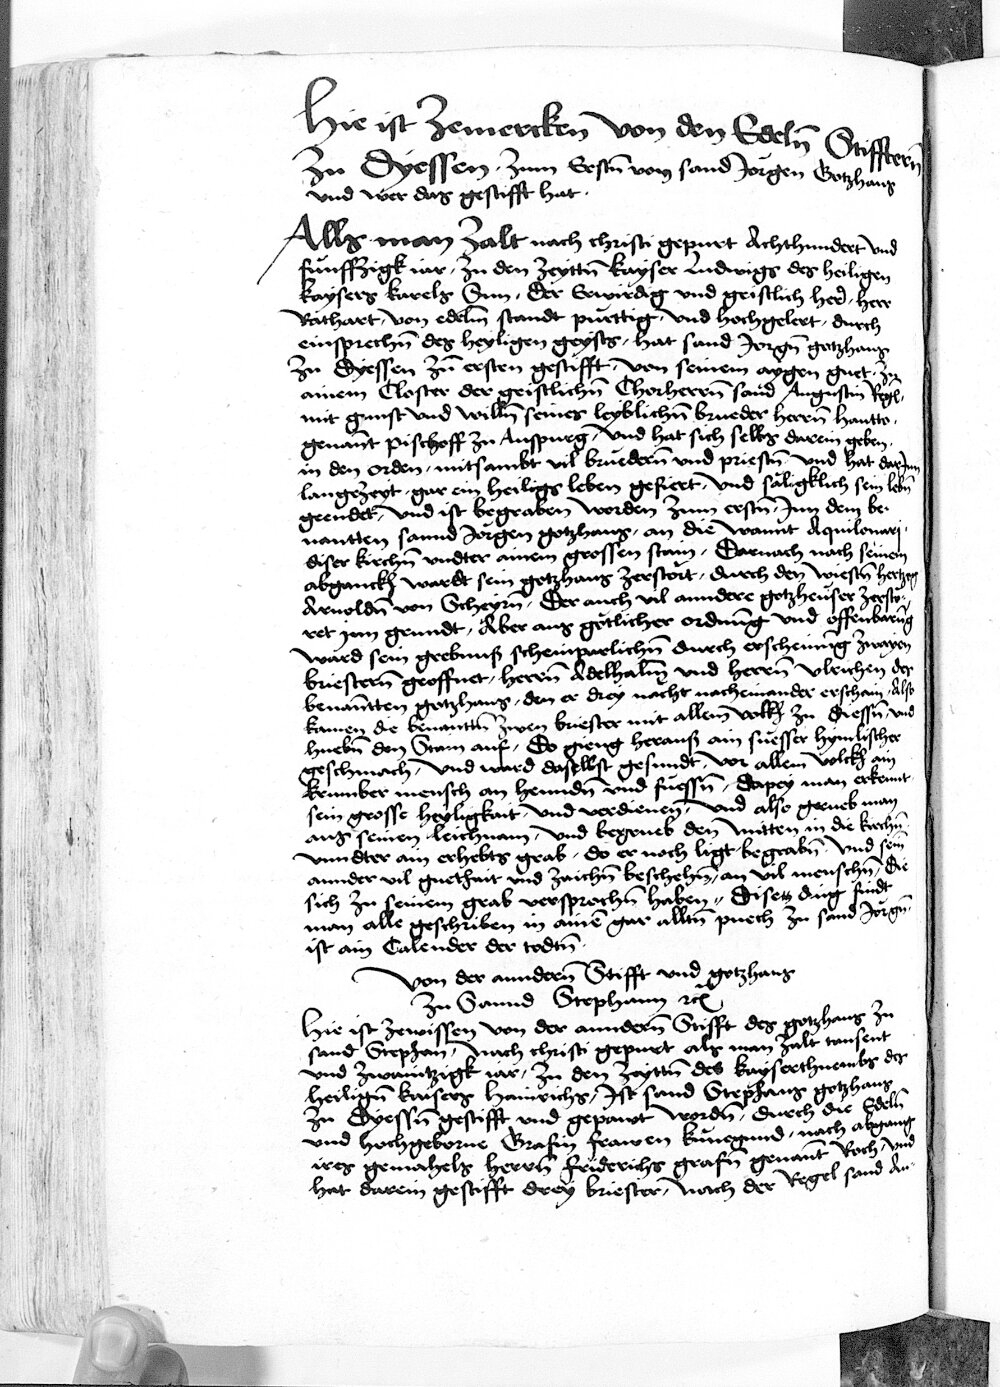 Hie ist Zemercken von den Edeln̄ Stifftern̄
Zu Dyessen. Zum Erstn̄ von sand Jörgen Gotzhaus
und wer das gestifft hat.
Alls man Zalt nach christi gepurt Achthundert und
funffzigk iar, Zu den Zeyttn̄ kayser Ludwigs des heiligen
kaysers karels Sun, Der Erwirdig und geistlich her̄, herr
Rathart, von edelm̄ standt purttig, und hochgelert, durch
einsprechn̄ des heyligen geysts, hat sand Jorgn̄ gotzhaus
Zu Dyessen Zu̅ ersten gestifft, von seinem aygen guet, Zu
ainem Closter der geistlichn̄ Chorherrn̄ sand Augustin Regl,
mit gunst und willn̄ seines leyblichn̄ brueder herrn̄ hantto,
genan̄t pischoff zu Auspurg, Und hat sich selbs darein geben,
in den orden, mitsambt vil bruedern̄ und priestn̄ und hat darjnn
langezeyt, gar ein heiligs leben gefiert, und säligklich sein lebn̄
geendet, und ist begraben worden Zum erstn̄, Jnn dem be-
nantten sannd Jörgen gotzhaus, an die wannt Aquilonarj,
diser kirchn̄ undter ainem grossen stain, Darnach nach seinem
abganckh wardt sein gotzhaus Zerstört, durch den wiestn̄ hertzog
Arnoldn̄ von Scheyrn̄, Der auch vil anndere gotzheuser Zersto-
ret jnn grundt, Aber aus götlicher ordnung und offenbarūg
ward sein grebnuß scheinparlichn̄ durch erscheinung zwayen
briestern̄ geoffnet, herrn̄ Adelhalm̄ und herrn̄ Ulrichen des
benan̄tten gotzhaus, den er drey nacht nacheinander erschain, Also
kamen die benanttn̄ zwen briester mit allem volckh zu Diessn̄, und
huebn̄ den Stain auf, Do gieng herauß ain suesser hymlischer
geschmach, und ward dasellbst gesundt, vor allem volckh ain
krumber mensch an henndn̄ und fuessn̄, Dapey man erkennt
sein grosse heyligkait, und verdienen, und also grueb man
aus seinen leichnam, und begrueb den mitten in die kirchn̄
unndter ain erhebts grab, do er noch ligt begrabn̄ und sein
annder vil guethait und zaichn̄ beschehn̄, an vil menschn̄, Die
sich zu seinem grab versprochn̄ haben, Disetz ding findt
man alle geschriben in aine̅ gar alltn̄ puech zu sand Jörgn̄
ist ain Calender der todtn̄.
Von der anndern̄ Stifft und gotzhaus
Zu Sannd Stephann rc̄
Hie ist zewissen von der anndern̄ Stifft des gotzhaus zu
sand Stephan, Nach christi gepurt als man zalt tausent
und zwaintzigk iar, Zu den zeyttn̄ des kayserthuembs des
heilign̄ kaisers Hainrichs, Ist sand Stephans gotzhaus
Zu Dyessn̄ gestifft und gepawt wordn̄, durch die Edeln̄
und hochgeborne Grafin frawen kunegund, nach abgang
ires gemahels herrn̄ friderichs grafn̄ genan̄t Roch, und
hat darein gestifft drey briester, Nach der Regel sand Au-